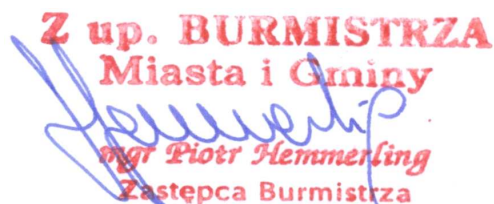 Z up. BURMISTRZA
Miasta i Gminy
mgr Piotr Hemmerling
Zastępca Burmistrza